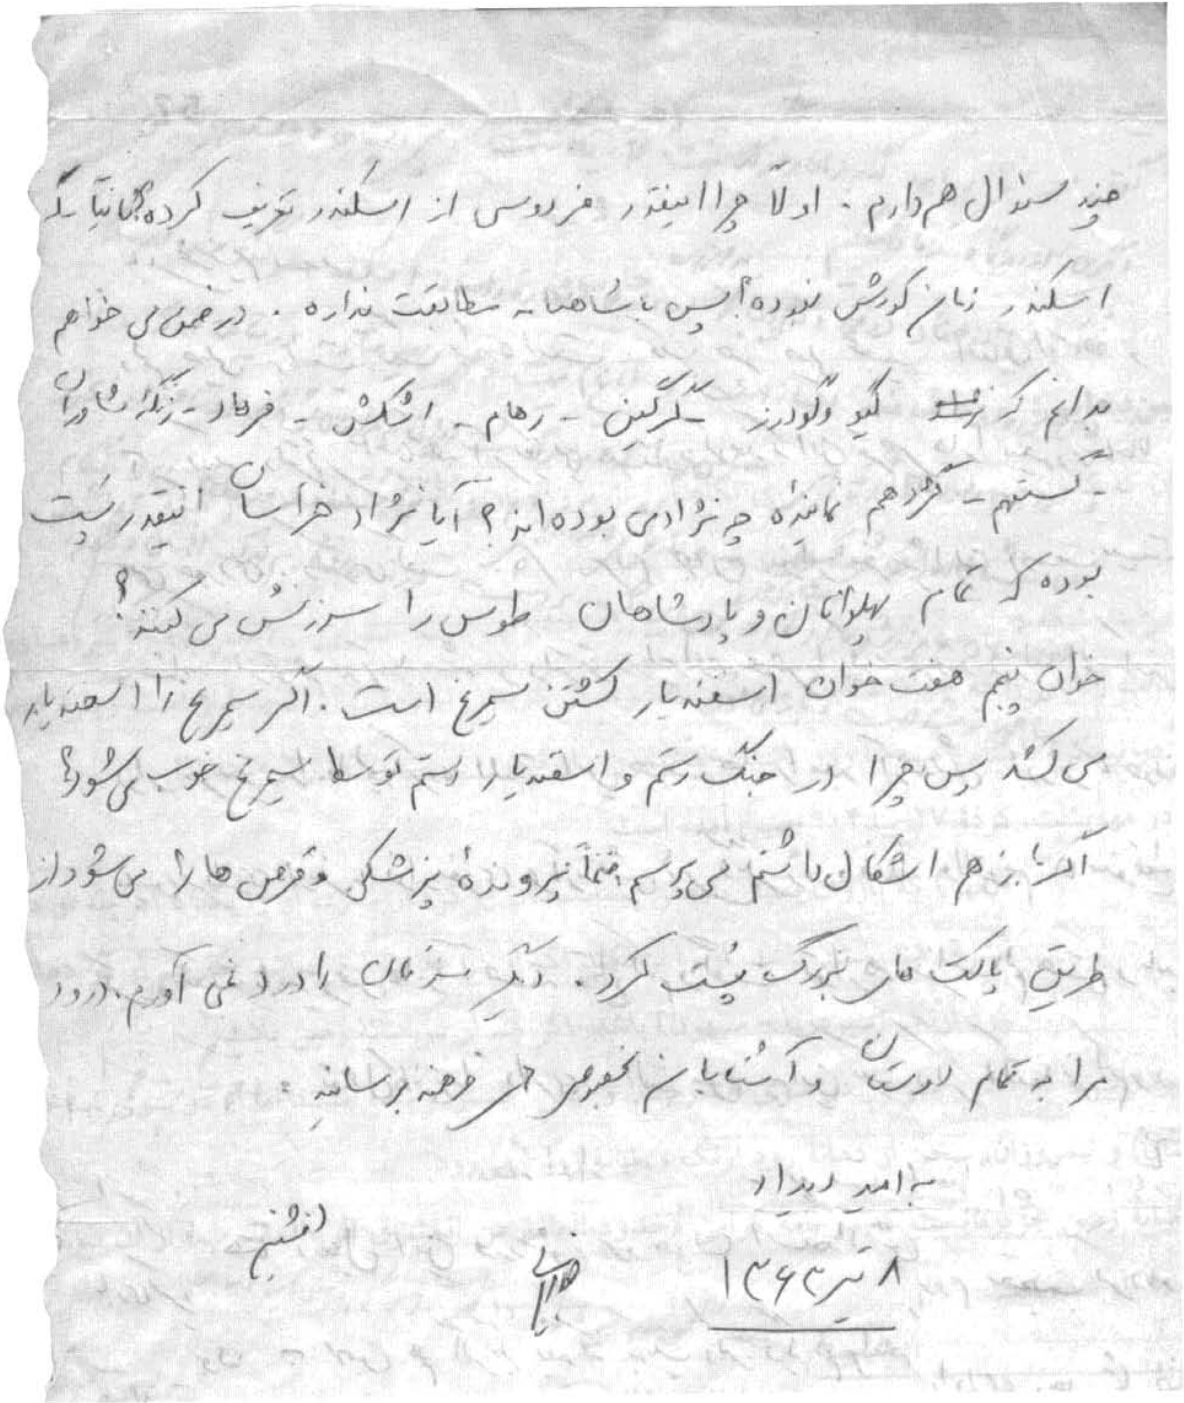 چند سئوال هم دارم. اولاً چرا اینقدر فردوسی از اسکندر تعریف کرده؟ ثانیاً
اسکندر زمان کورش نبوده؟ پس با شاهنامه مطابقت نداره. در ضمن می خواهم
بدانم که گیو و گودرز - گرگین - رهام - اشکش - فرهاد - زنگهٔ شاوران
- گستهم - گژدهم نمایندهٔ چه نژادی بوده اند؟ آیا نژاد خراسان اینقدر پست
بوده که تمام پهلوانان و پادشاهان طوس را سرزنش می کنند؟
خوان پنجم هفت خوان اسفندیار کشتن سیمرغ است. اگر سیمرغ را اسفندیار
می کشد پس چرا در جنگ رستم و اسفندیار رستم توسط سیمرغ خوب می شود؟
اگر باز هم اشکال داشتم می پرسم ضمناً پروندهٔ پزشکی و قرص ها را می شود از
طریق پاکت های بزرگ پست کرد. دیگر سرتان را درد نمی آورم. درود
مرا به تمام دوستان و آشنایان بخصوص برسانید.
به امید دیدار
افشین
۸ تیر ۱۳۶۳